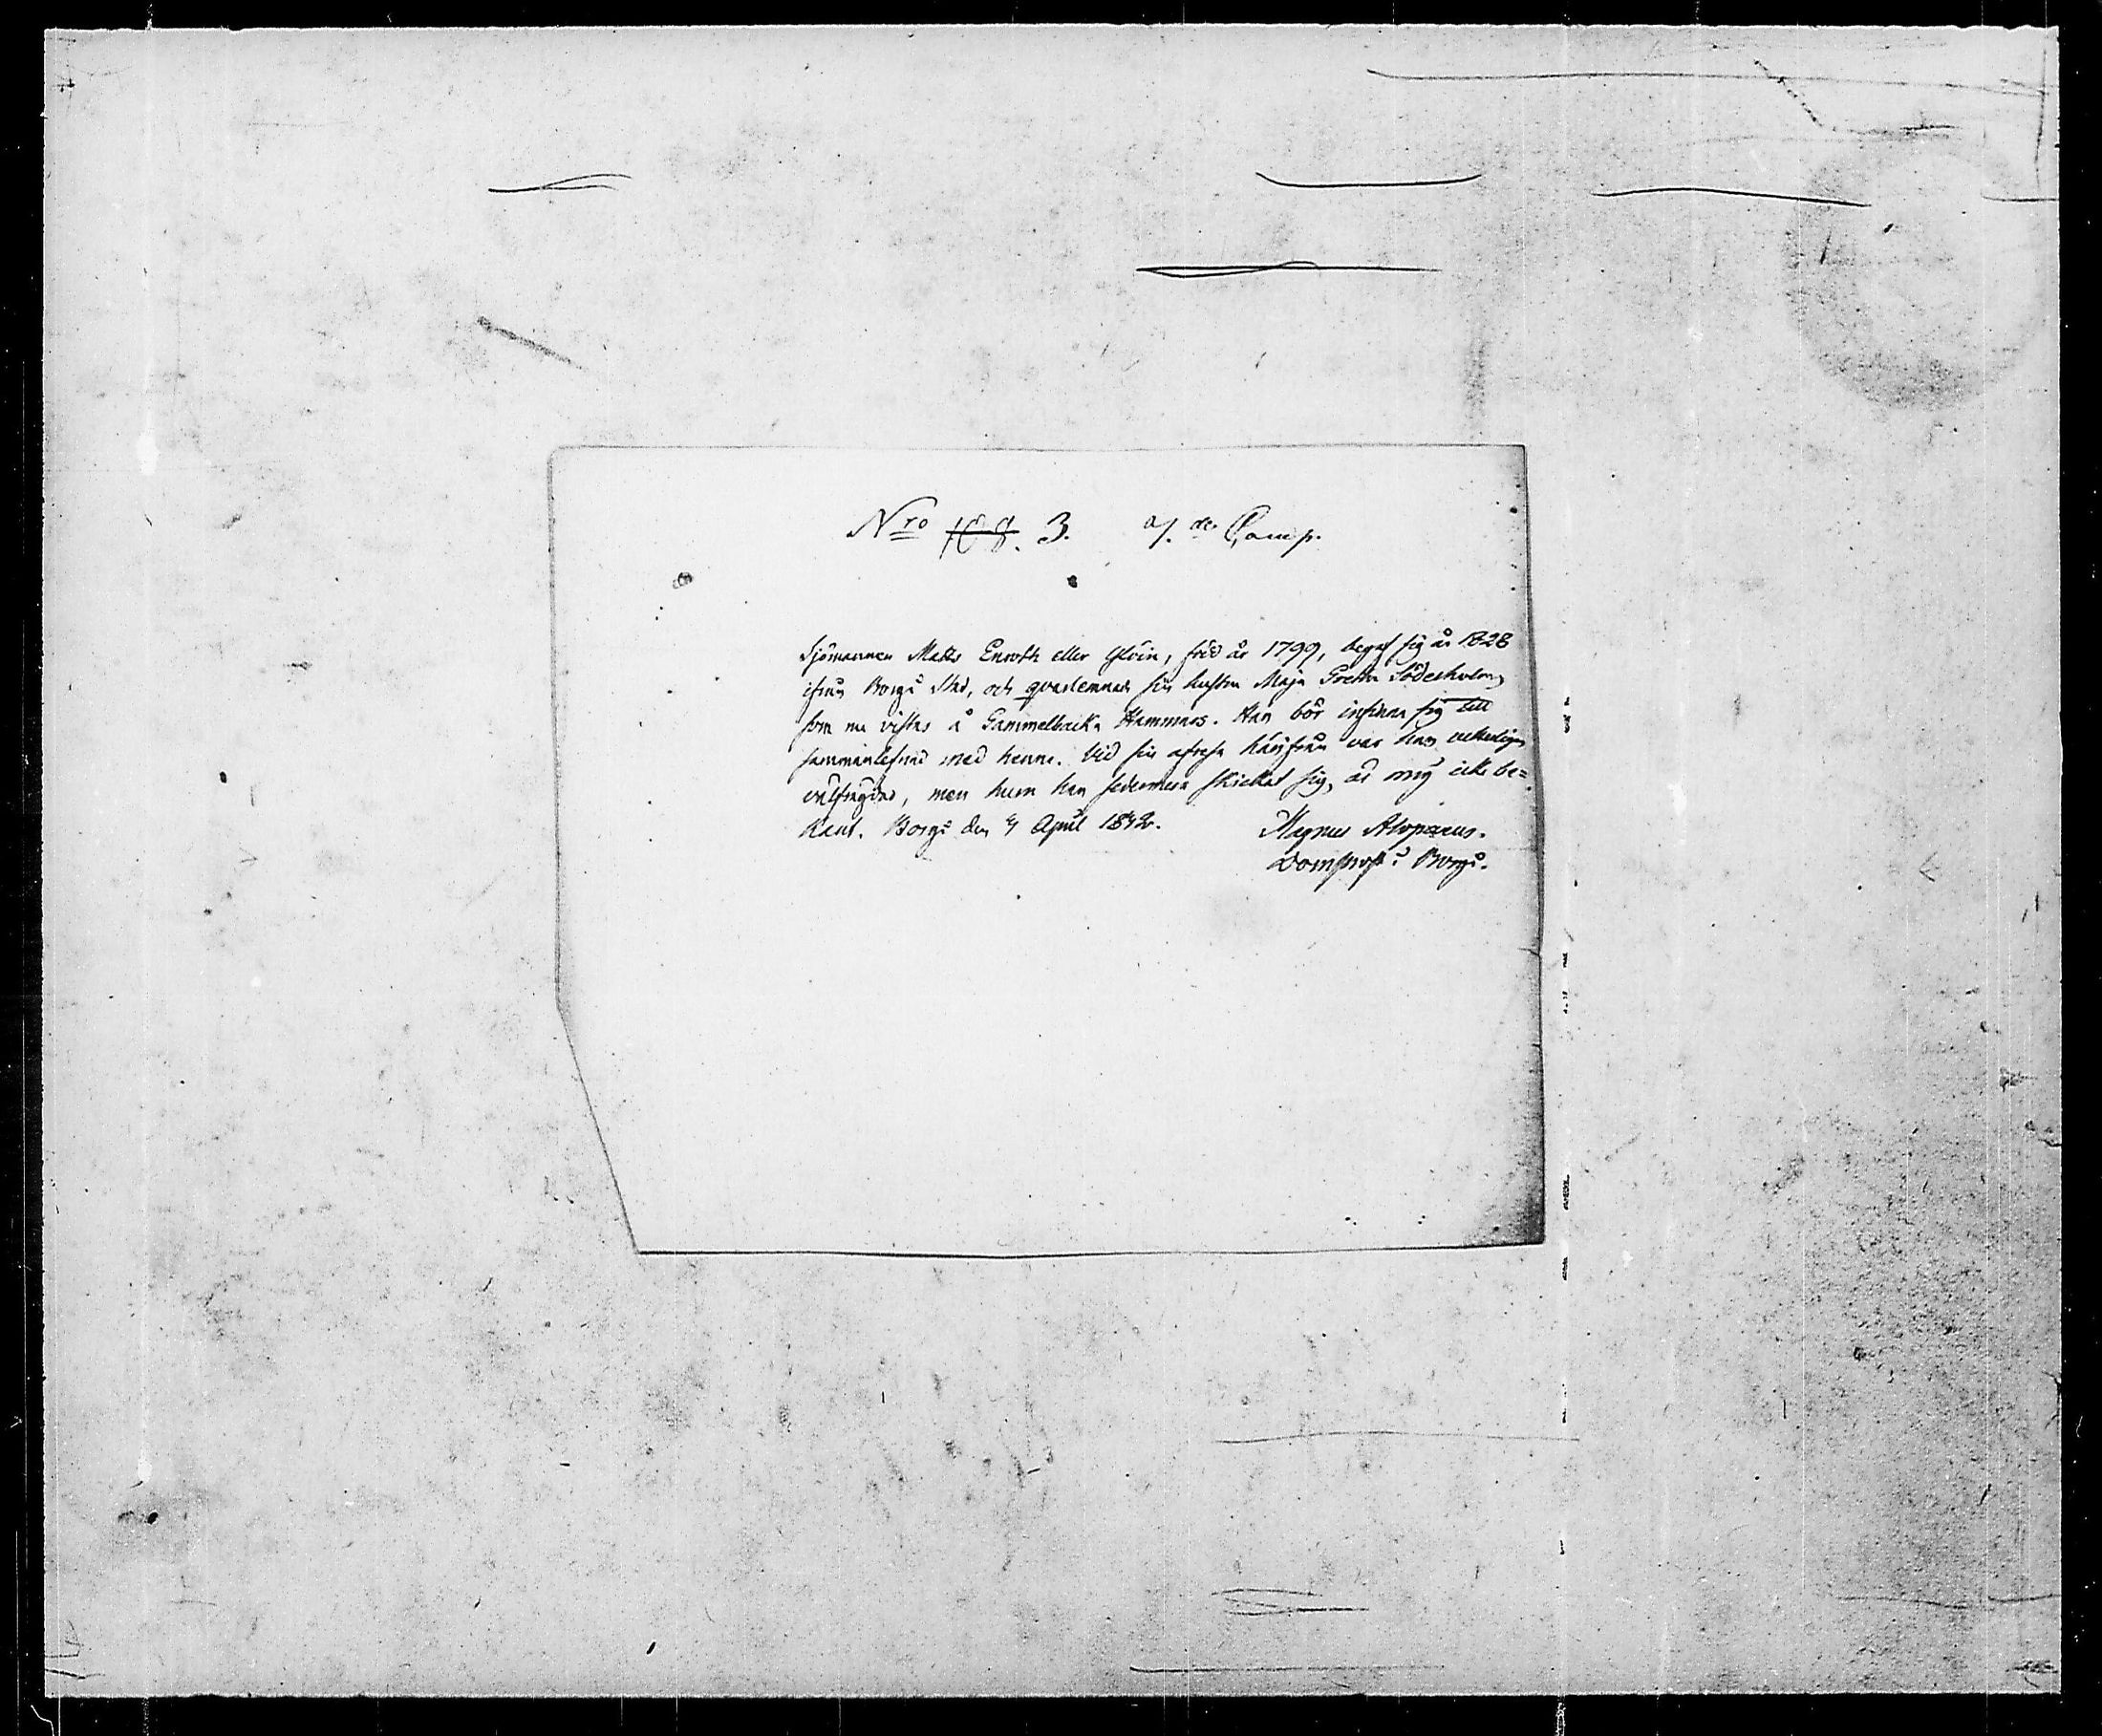 Nro 108. 3. a/. de Comp.
Sjömannen Matts Enroth eller Glöin, född år 1799, begaf sig år 1828
ifrån Borgå Stad, och qvarlemnade sin hustru Maja Greta Söderholm,
som nu vistas å Gammelbacka Hammars. Han bör infinna sig till
sammanlefnad med henne. Vid sin afresa härifrån var han
välfrägdad, men huru han sedermera skickat sig, är mig icke be=
kant. Borgå den 4 April 1842. Magnus Alopaeus.
Domprost i Borgå.